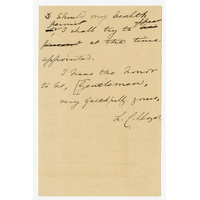 & Should my health
permit
I shall try to
at the time
appointed.
I have the honor
to be, Gentlemen,
very faithfully yours,
L. C.